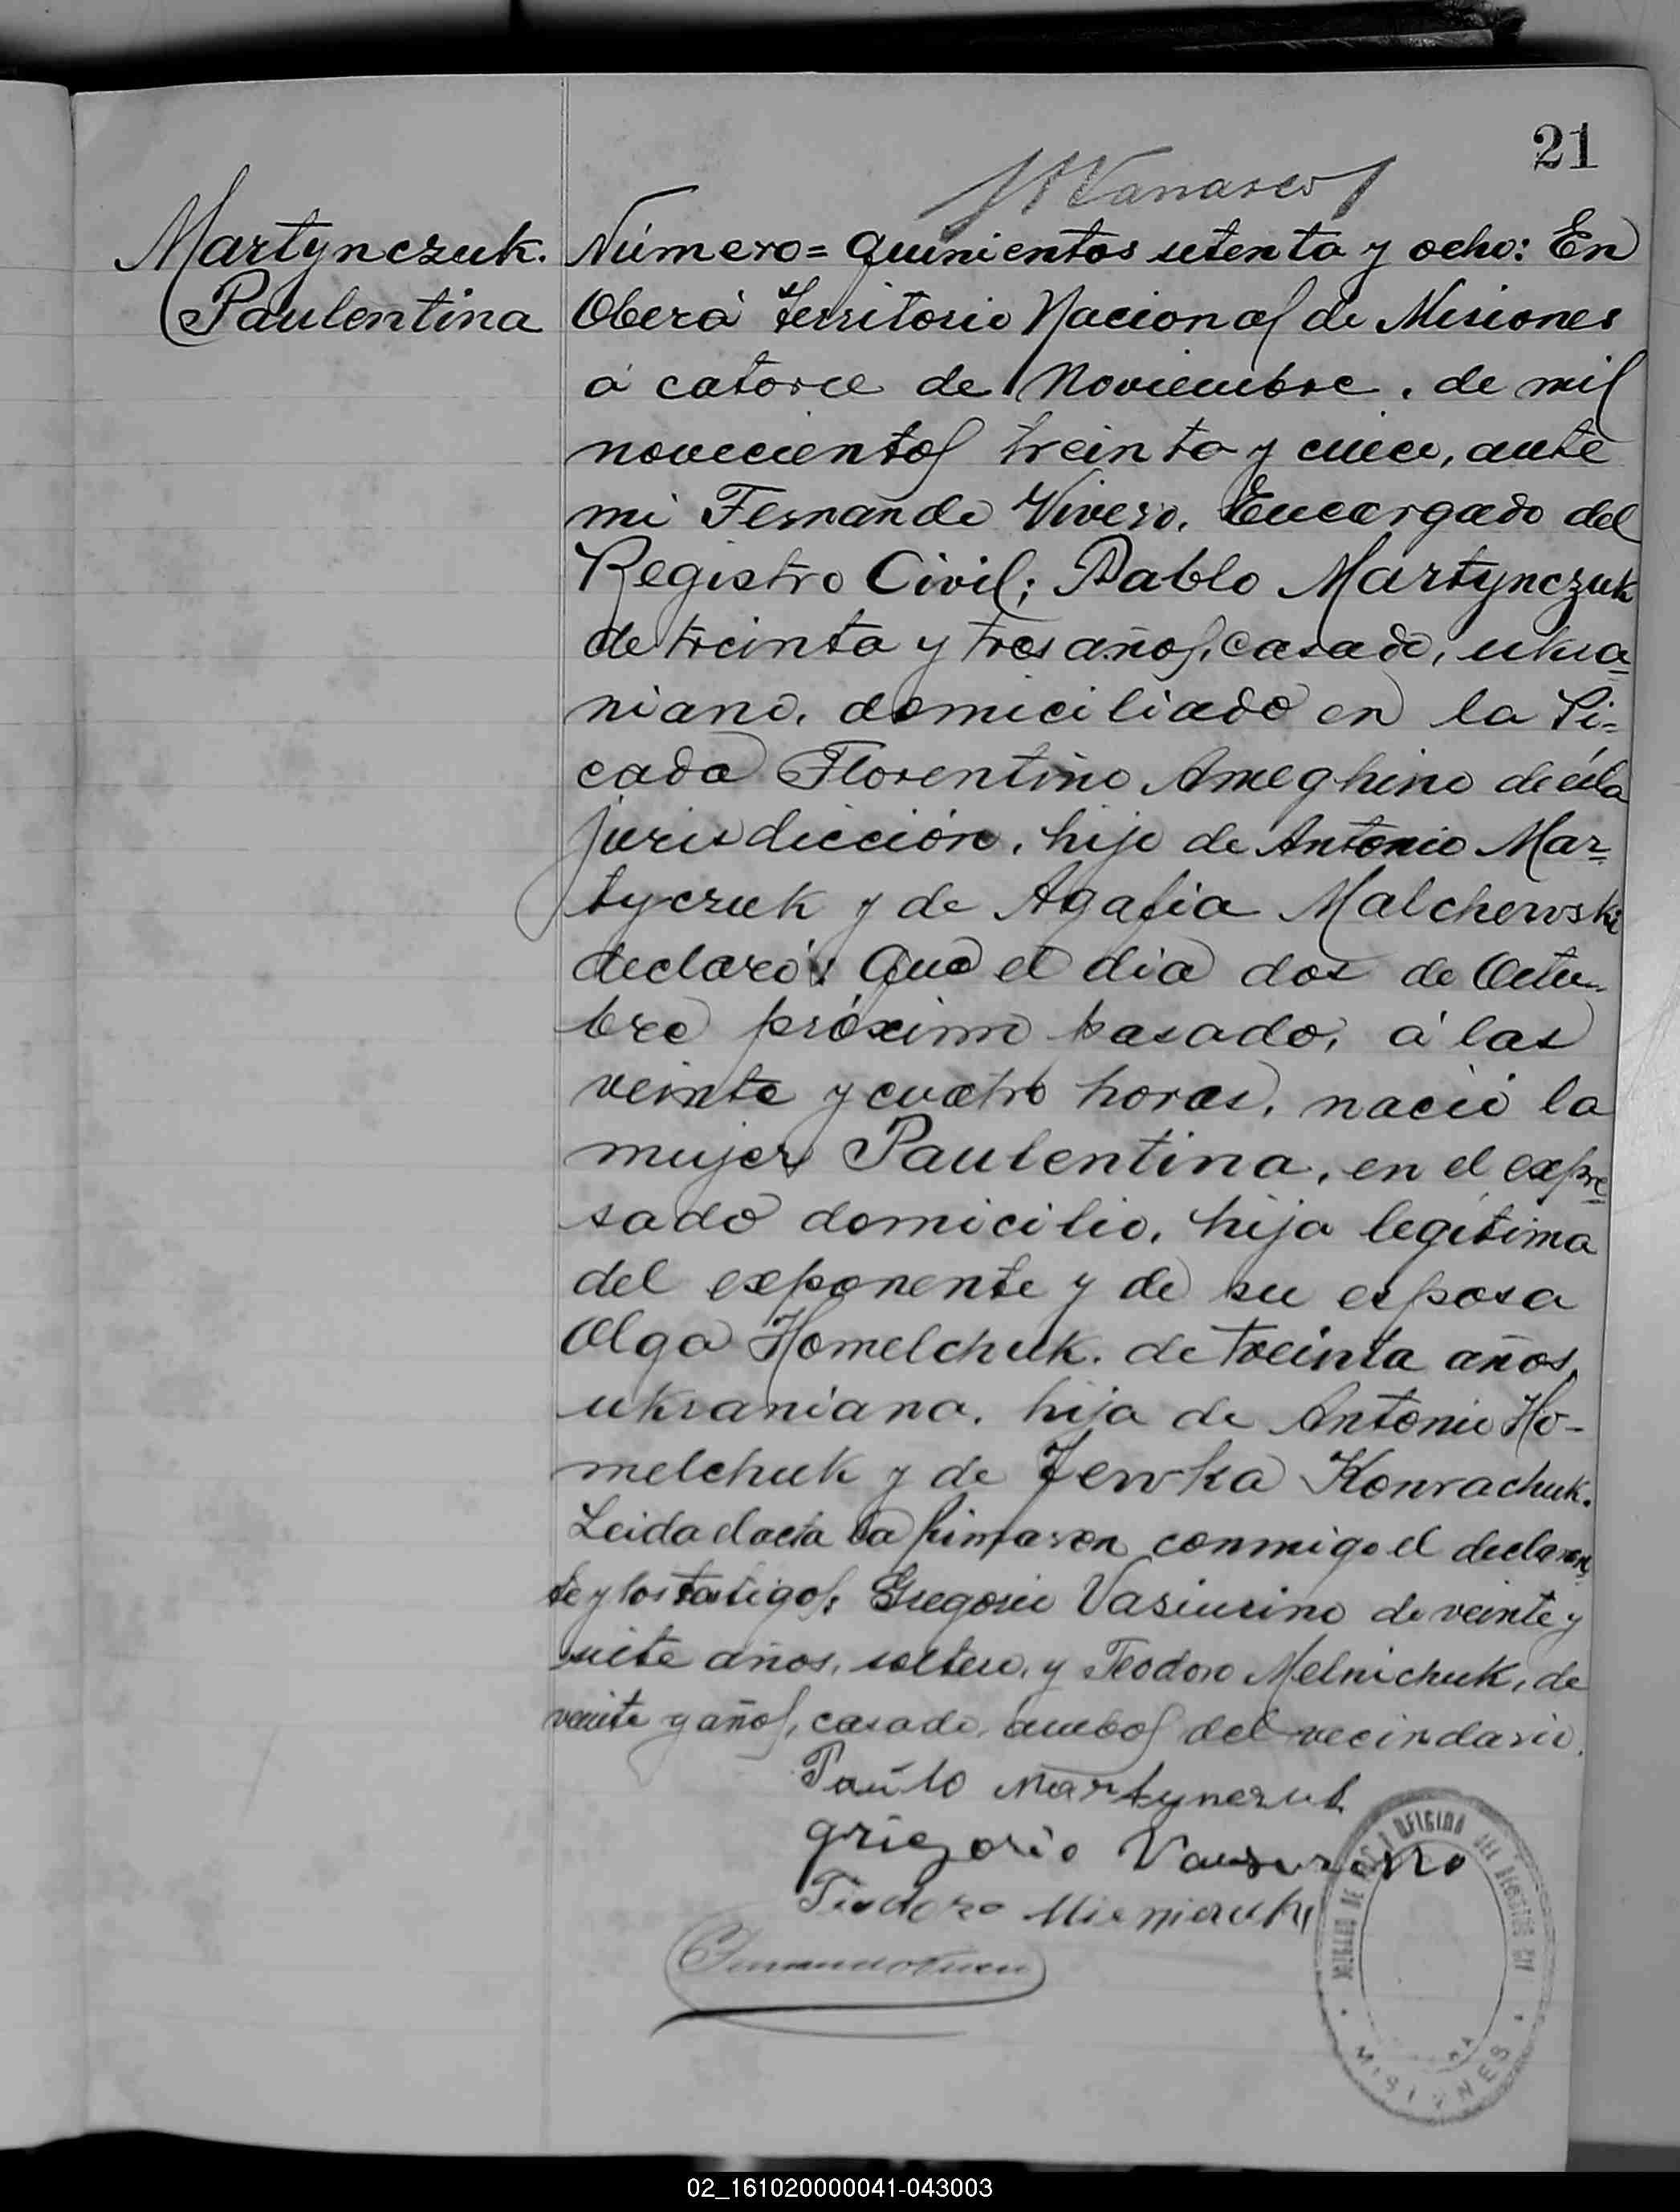 21
Martynczuk.
Paulentina
Número= quinientos setenta y ocho: En
Oberá Territorio Nacional de Misiones
á catorce de Noviembre, de mil
novecientos treinta y cinco, ante
mi Fernando Vivero, Encargado del
Registro Civil; Pablo Martynczuk
de treinta y tres años, casado, ukra=
niano, domiciliado en la Pi=
cada Florentino Ameghino de ésta
jurisdicción, hijo de Antonio Mar=
tyczuk y de Agafia Malchewski
declaró: Que el dia dos de Octu=
bre próximo pasado, á las
veinte y cuatro horas, nació la
mujer Paulentina, en el expre=
sado domicilio, hija legítima
del exponente y de su esposa
Olga Homelchuk, de treinta años,
ukraniana, hija de Antonio Ho-
melchuk y de Jewka Konrachuk.
Leida el acta la firmaron conmigo el declaran=
te y los testigos: Gregorio Vasiurino de veinte y
siete años, soltero, y Teodoro Melnichuk, de
veinte y años, casado, ambos del vecindario.
Pavlo Martynczuk
grigorio
Tiodoro
MISIONES
02_161020000041-043003